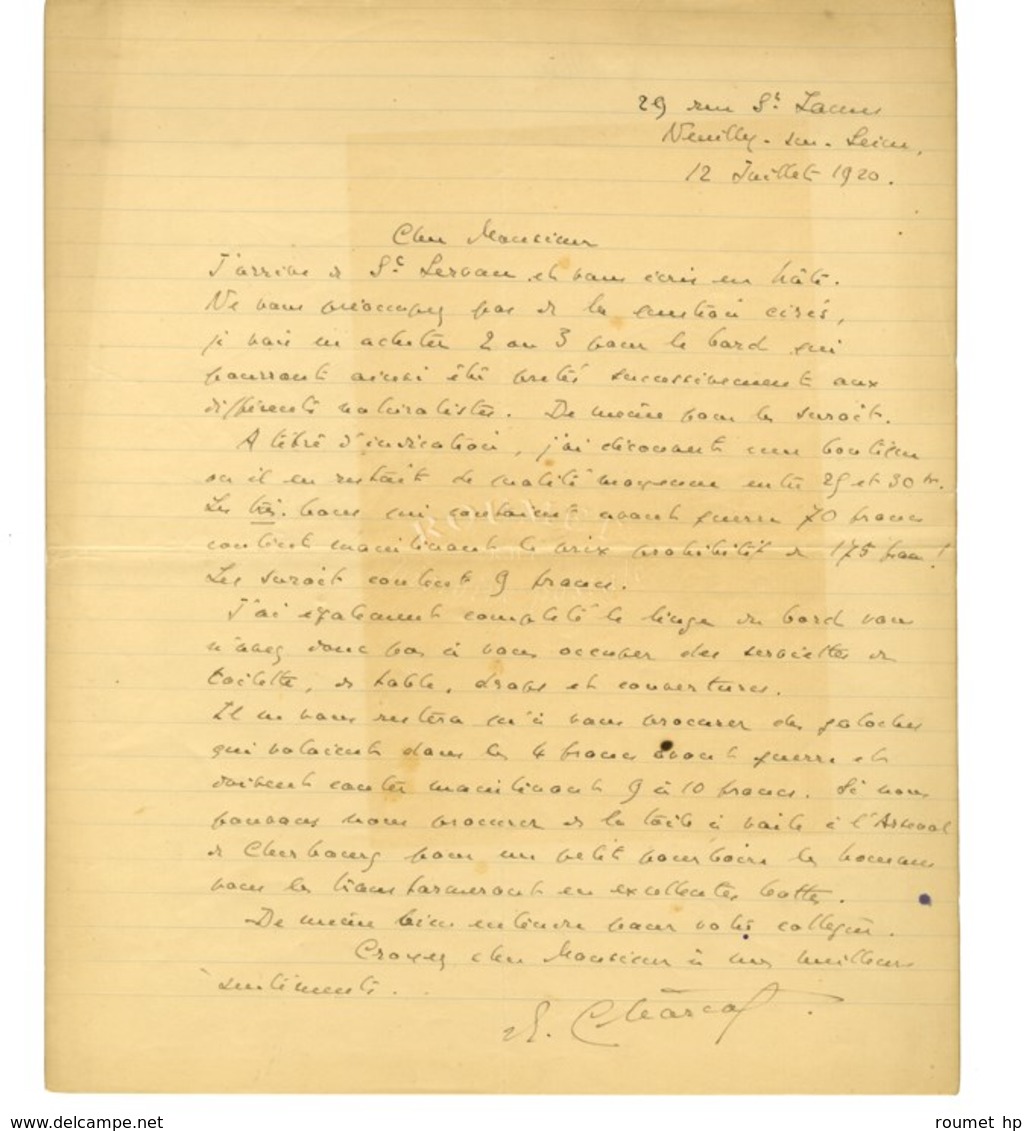 29 rue St James
Neuilly-sur-Seine,
12 Juillet 1920.
Cher Monsieur
J'arrive de St Servan et vous écris en hâte.
Ne vous préoccupez pas de la question cirés,
je vais en acheter 2 ou 3 pour le bord qui
pourront ainsi être prêtés successivement aux
différents naturalistes. De même pour les suroîts.
A titre d'indication, j'ai découvert une boutique
où il en restait de qualité moyenne entre 25 et 30 fr.
Les très bons qui coutaient avant guerre 70 francs
coutent maintenant le prix prohibitif de 175 francs!
Les suroît coutent 9 francs.
J'ai également complété le linge du bord vous
n'avez donc pas à vous occuper des serviettes de
toilette, de table, draps et couvertures.
Il ne vous restera qu'à vous procurer des galoches
qui valaient dans les 4 francs avant guerre et
doivent couter maintenant 9 à 10 francs. Si nous
pouvons nous procurer de la toile à voile à l'Arsenal
de Cherbourg pour un petit pourboire les hommes
vous les transformeront en excellentes bottes.
De même bien entendu pour votre collègue.
Croyez cher Monsieur à mes meilleurs
sentiments.
Charcot
roumet hp